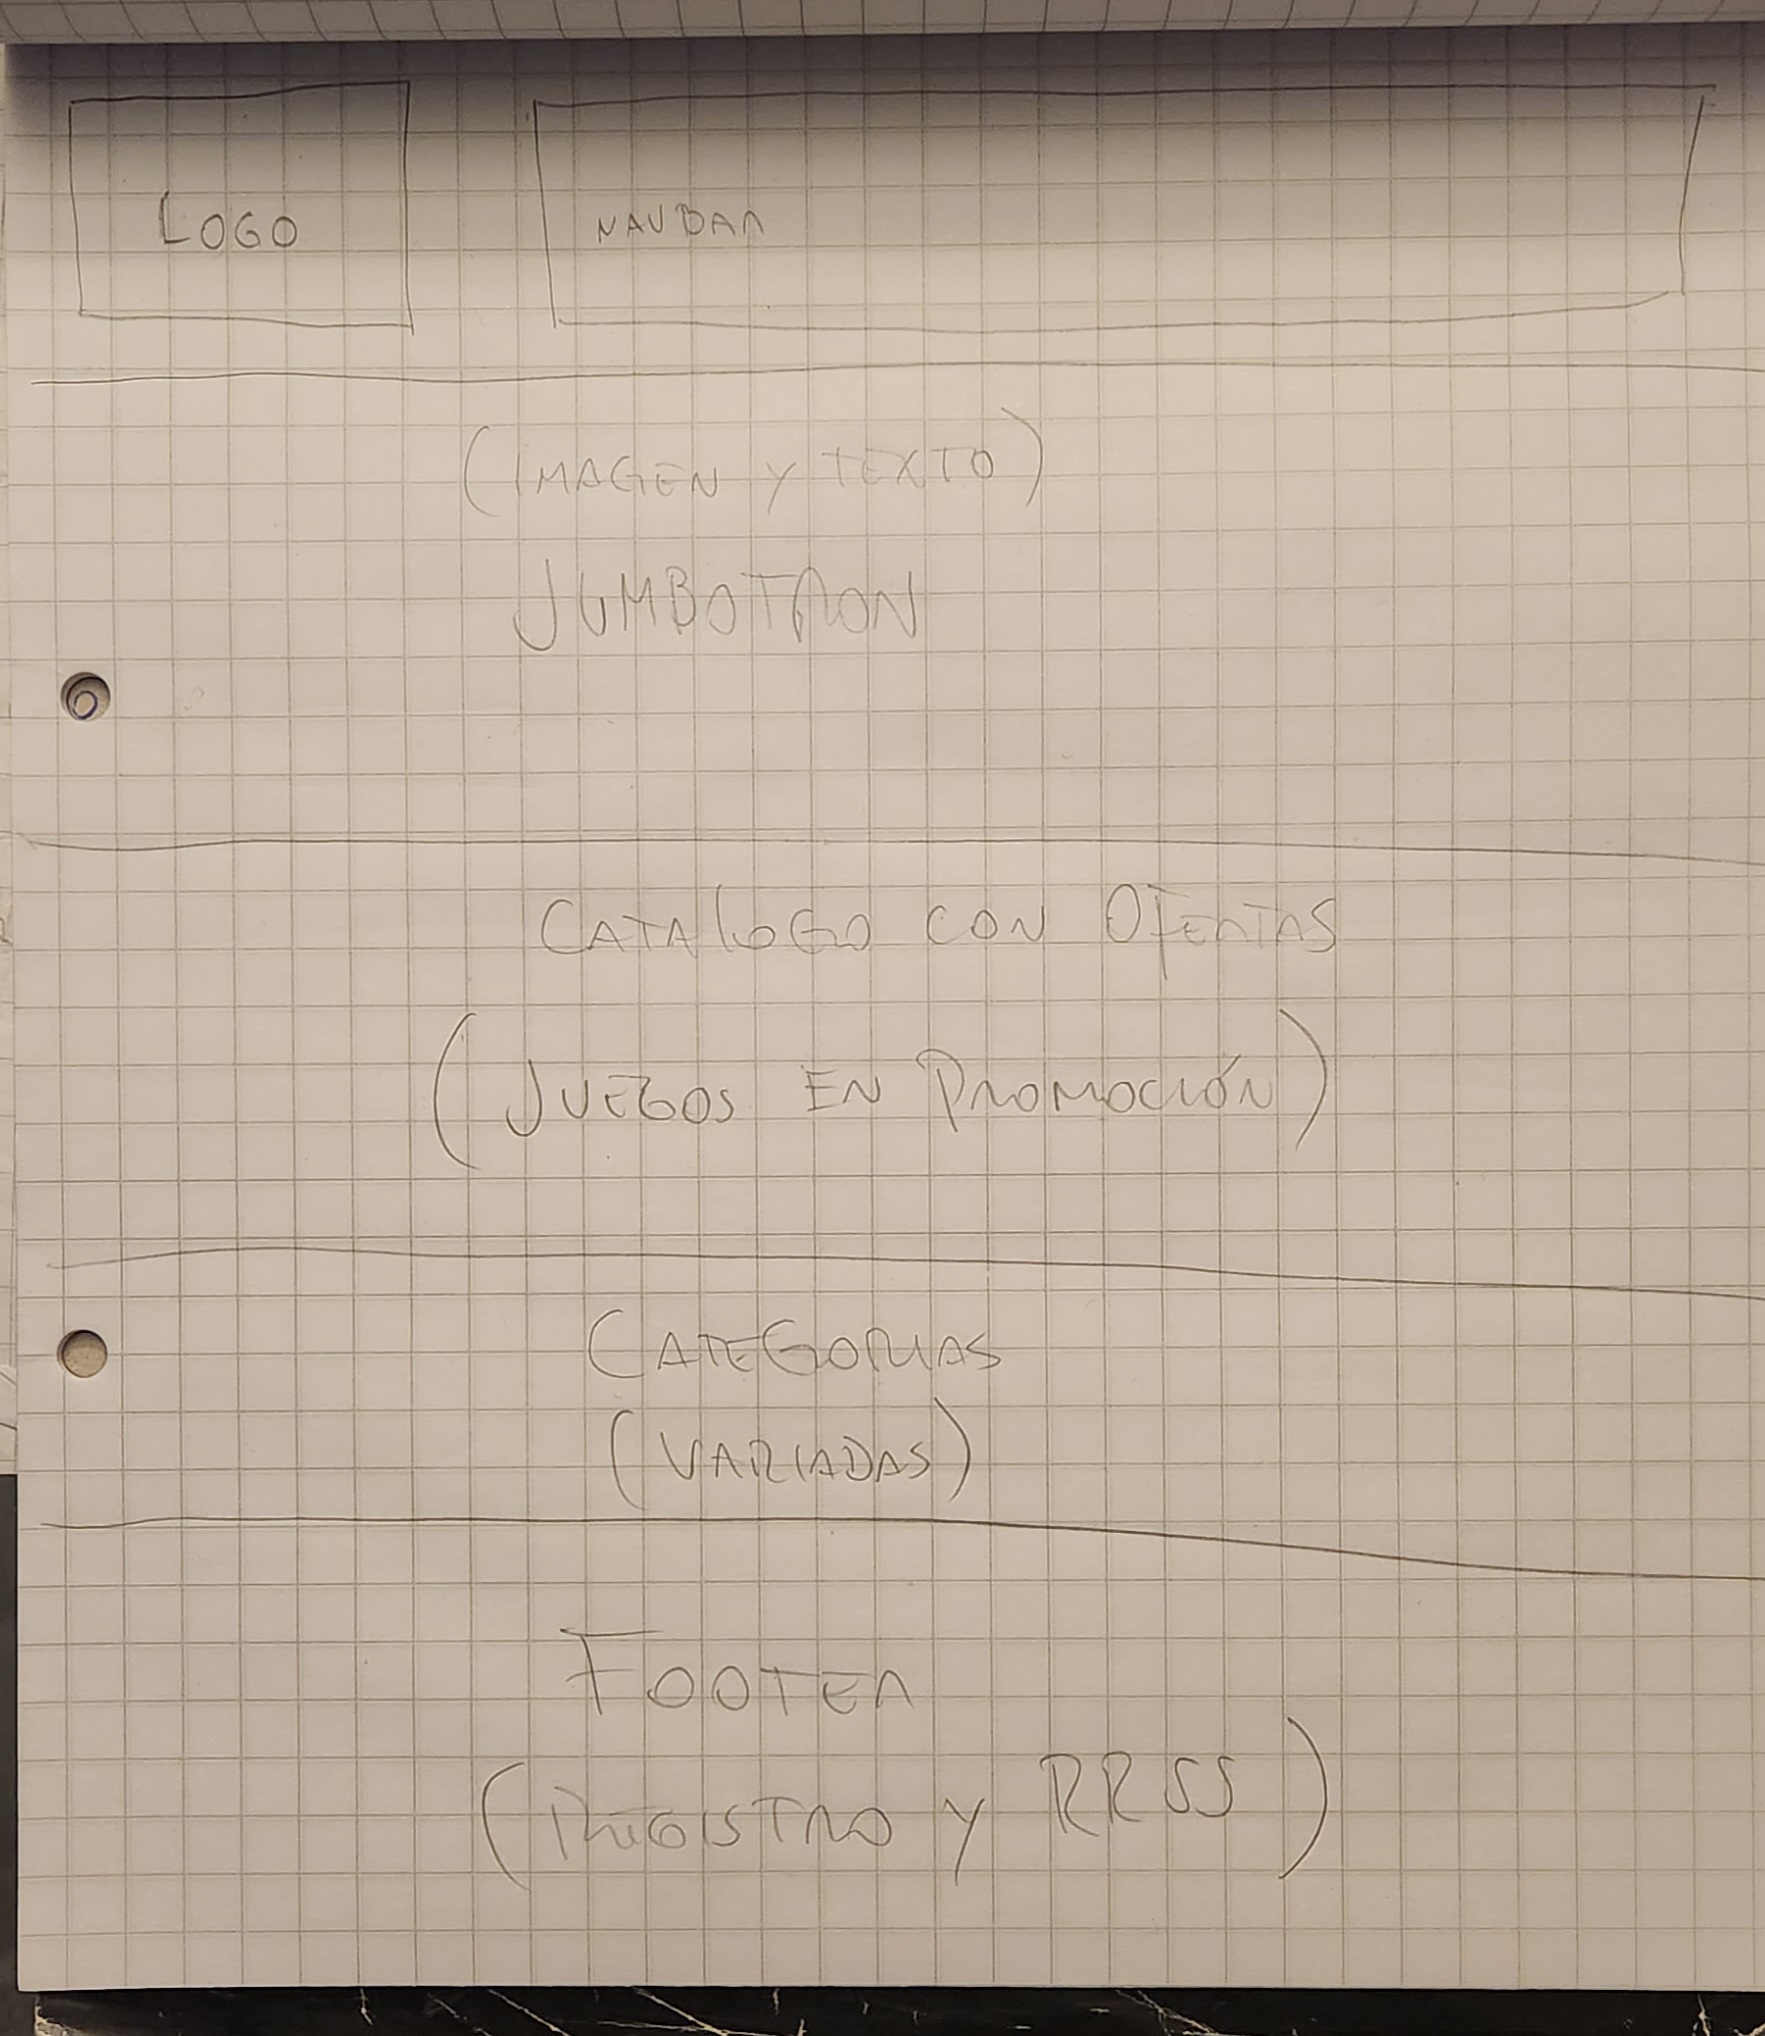 LOGO
NAVBAR
(IMAGEN Y TEXTO)
JUMBOTRON
CATALOGO CON OFERTAS
(JUEGOS EN PROMOCIÓN)
CATEGORIAS
(VARIADAS)
FOOTER
(REGISTRO Y RRSS)